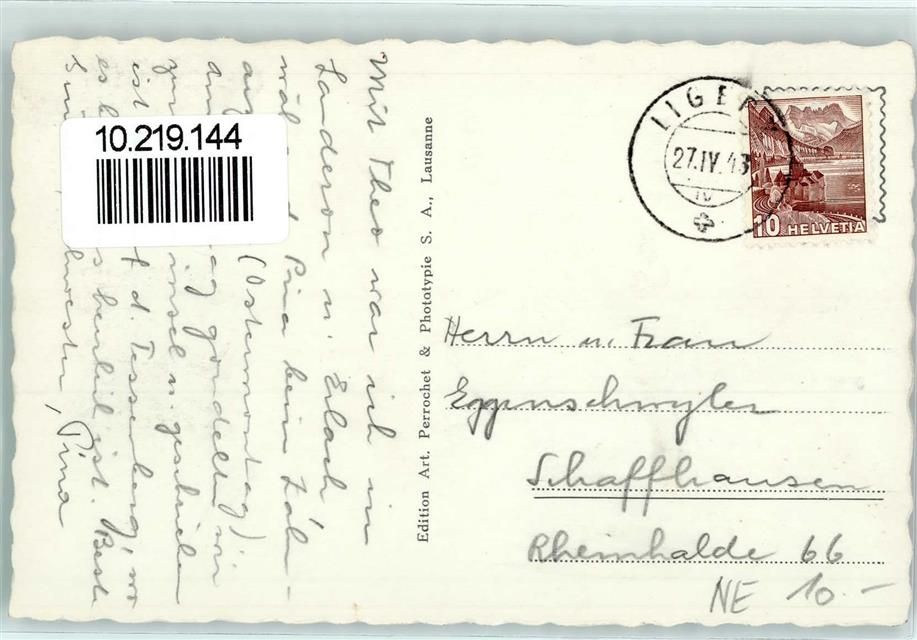 10.219.144
Mit Theo war ich in
Landeron u. Erlach
Pina beim Zahn-
(Ostermontag)
gondelten wir
insel u. geschrieben
ist d. Tessenberg, wo
es herrlich ist. Beste
Pina
Edition Art. Perrochet & Phototypie S. A., Lausanne
LIGERZ
27.IV.43
10 HELVETIA
Herrn u. Frau
Eggenschwyler
Schaffhausen
Rheinhalde 66
NE 10.-